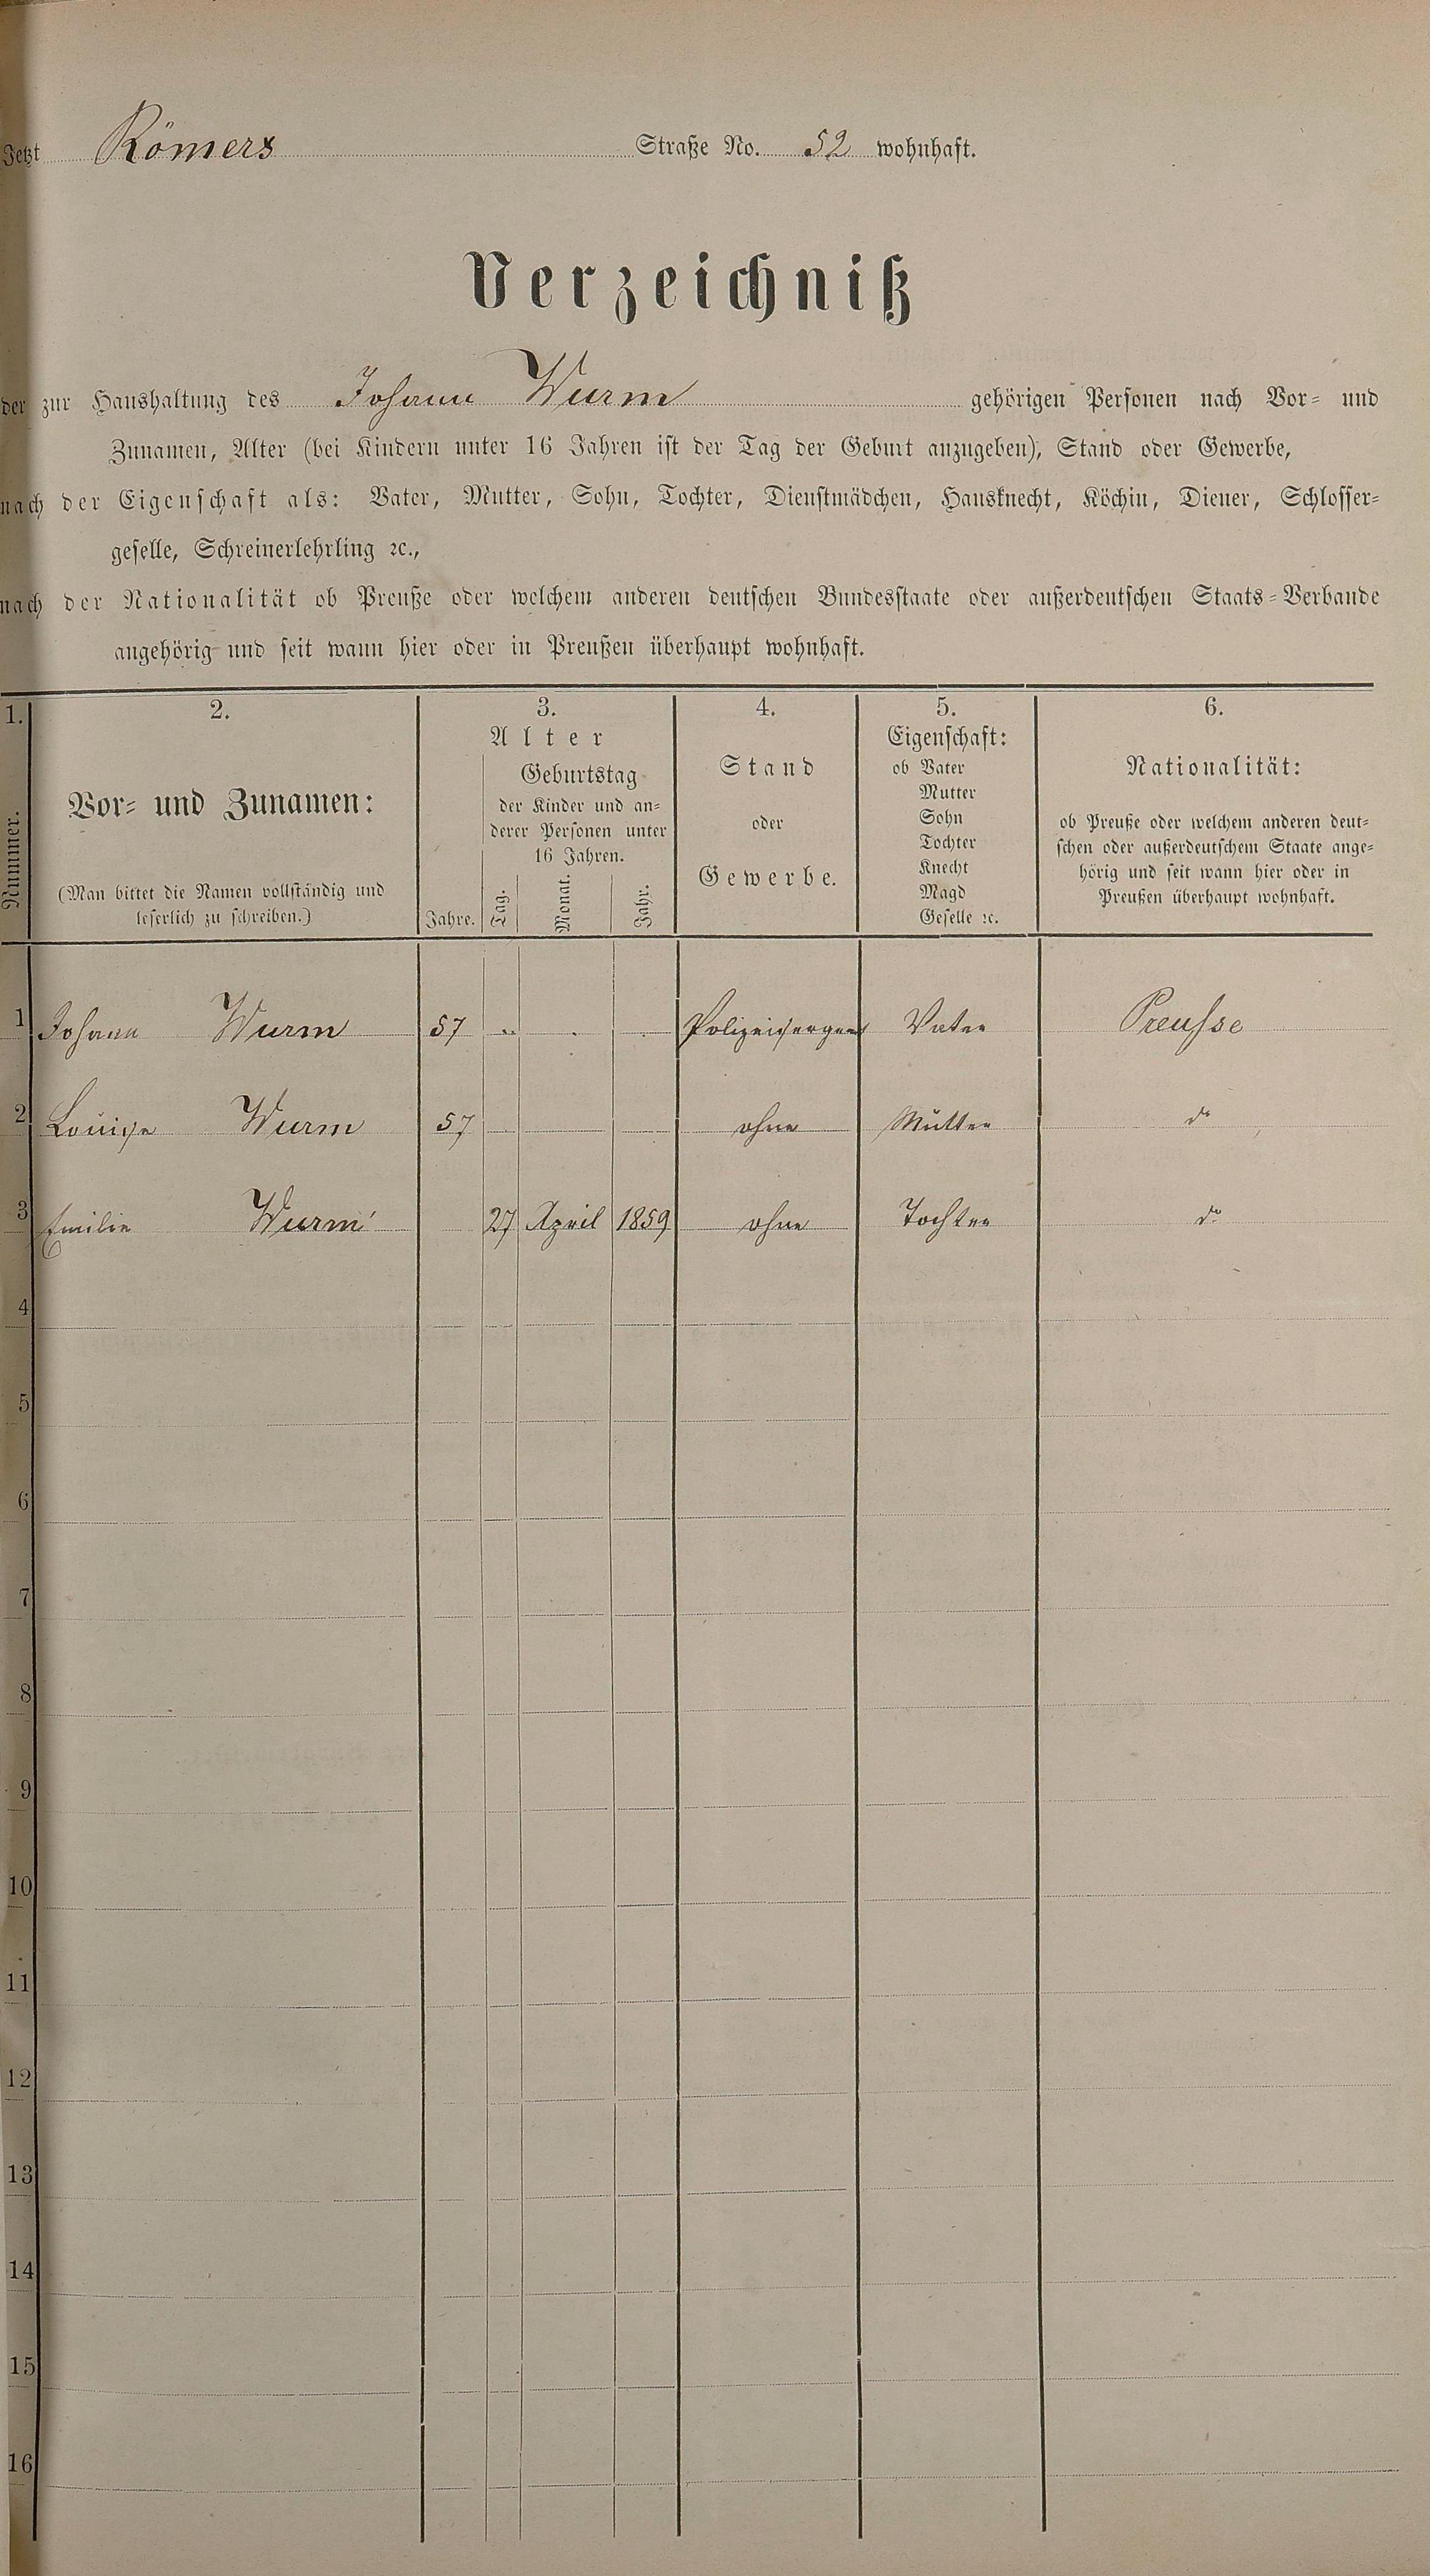 Jetzt Römers Straße No. 52 wohnhaft.
Verzeichniß
der zur Haushaltung des Johann Wurm gehörigen Personen nach Vor- und
Zunamen, Alter (bei Kindern unter 16 Jahren ist der Tag der Geburt anzugeben), Stand oder Gewerbe,
nach der Eigenschaft als: Vater, Mutter, Sohn, Tochter, Dienstmädchen, Hausknecht, Köchin, Diener, Schlosser-
geselle, Schreinerlehrling ꝛc.,
nach der Nationalität ob Preuße oder welchem anderen deutschen Bundesstaate oder außerdeutschen Staats-Verbande
angehörig und seit wann hier oder in Preußen überhaupt wohnhaft.
1. 2. 3. 4. 5. 6.
Nummer.
Vor- und Zunamen:
(Man bittet die Namen vollständig und
leserlich zu schreiben.)
Alter
Jahre.
Geburtstag
der Kinder und an-
derer Personen unter
16 Jahren.
Tag. Monat. Jahr.
Stand
oder
Gewerbe.
Eigenschaft:
ob Vater
Mutter
Sohn
Tochter
Knecht
Magd
Geselle ꝛc.
Nationalität:
ob Preuße oder welchem anderen deut-
schen oder außerdeutschem Staate ange-
hörig und seit wann hier oder in
Preußen überhaupt wohnhaft.
1 Johann Wurm 57 Polizeisergent Vater Preusse
2 Louise Wurm 57 ohne Mutter do
3 Emilie Wurm 27 April 1859 ohne Tochter do
4
5
6
7
8
9
10
11
12
13
14
15
16